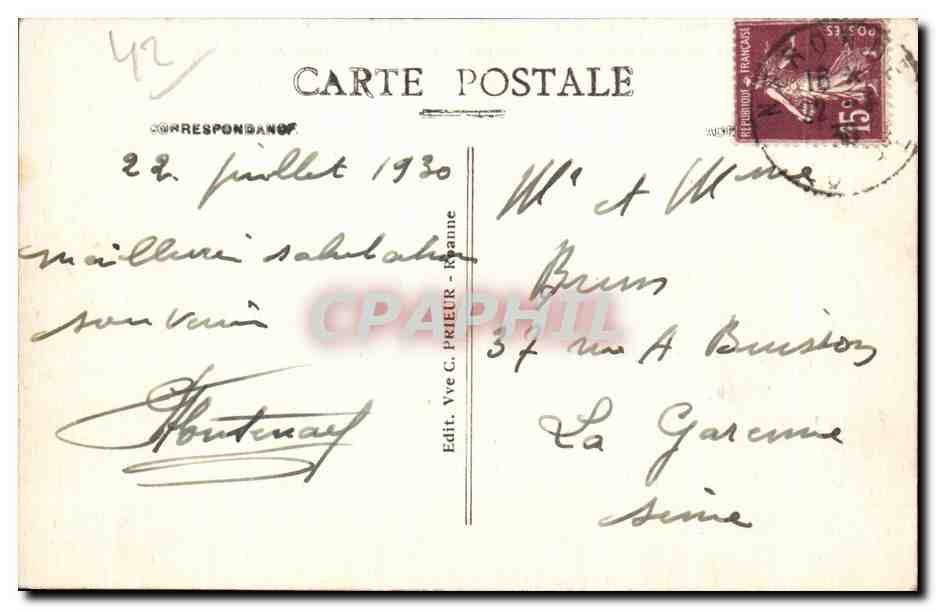 42
CARTE POSTALE
CORRESPONDANCE
22 juillet 1930
meilleures salutations
souvenir
Edit. Vve C. PRIEUR - Roanne
Mr et Mme
Brun
37 rue A Buisson
La Garenne
Seine
REPUBLIQUE FRANÇAISE
POSTES
15c
CPAPHIL